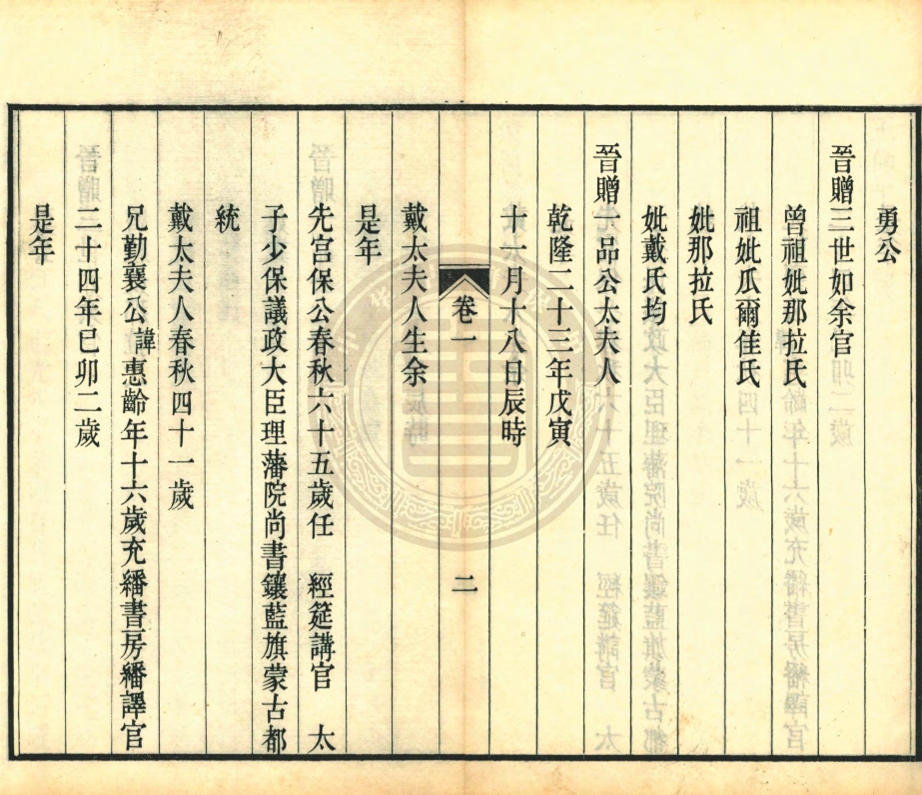 勇公
晉贈三世如余官
曾祖妣那拉氏
祖妣瓜爾佳氏
妣那拉氏
妣戴氏均
晉贈一品公太夫人
乾隆二十三年戊寅
十一月十八日辰時
卷一 二
戴太夫人生余
是年
先宮保公春秋六十五歲任 經筵講官 太
子少保議政大臣理藩院尚書鑲藍旗蒙古都
統
戴太夫人春秋四十一歲
兄勤襄公諱惠齡年十六歲充繙書房繙譯官
二十四年巳卯二歲
是年